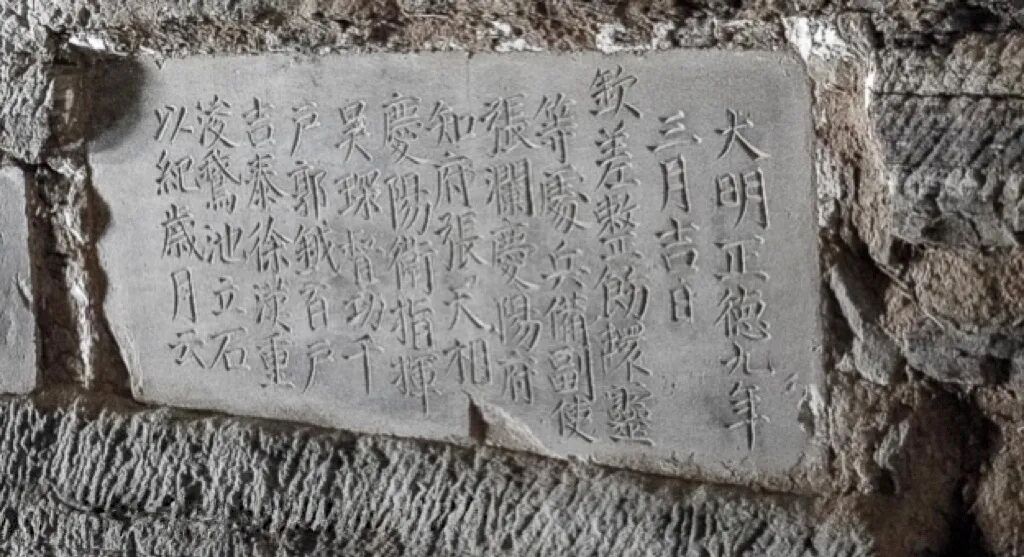 大明正德九年
三月吉日
欽差整飭環慶
等處兵備副使
張瀾慶陽府
知府張天相
慶陽衛指揮
吴琛督功千
戸郭鉞百戸
吉泰徐漢重
浚鵞池立石
以紀歲月云